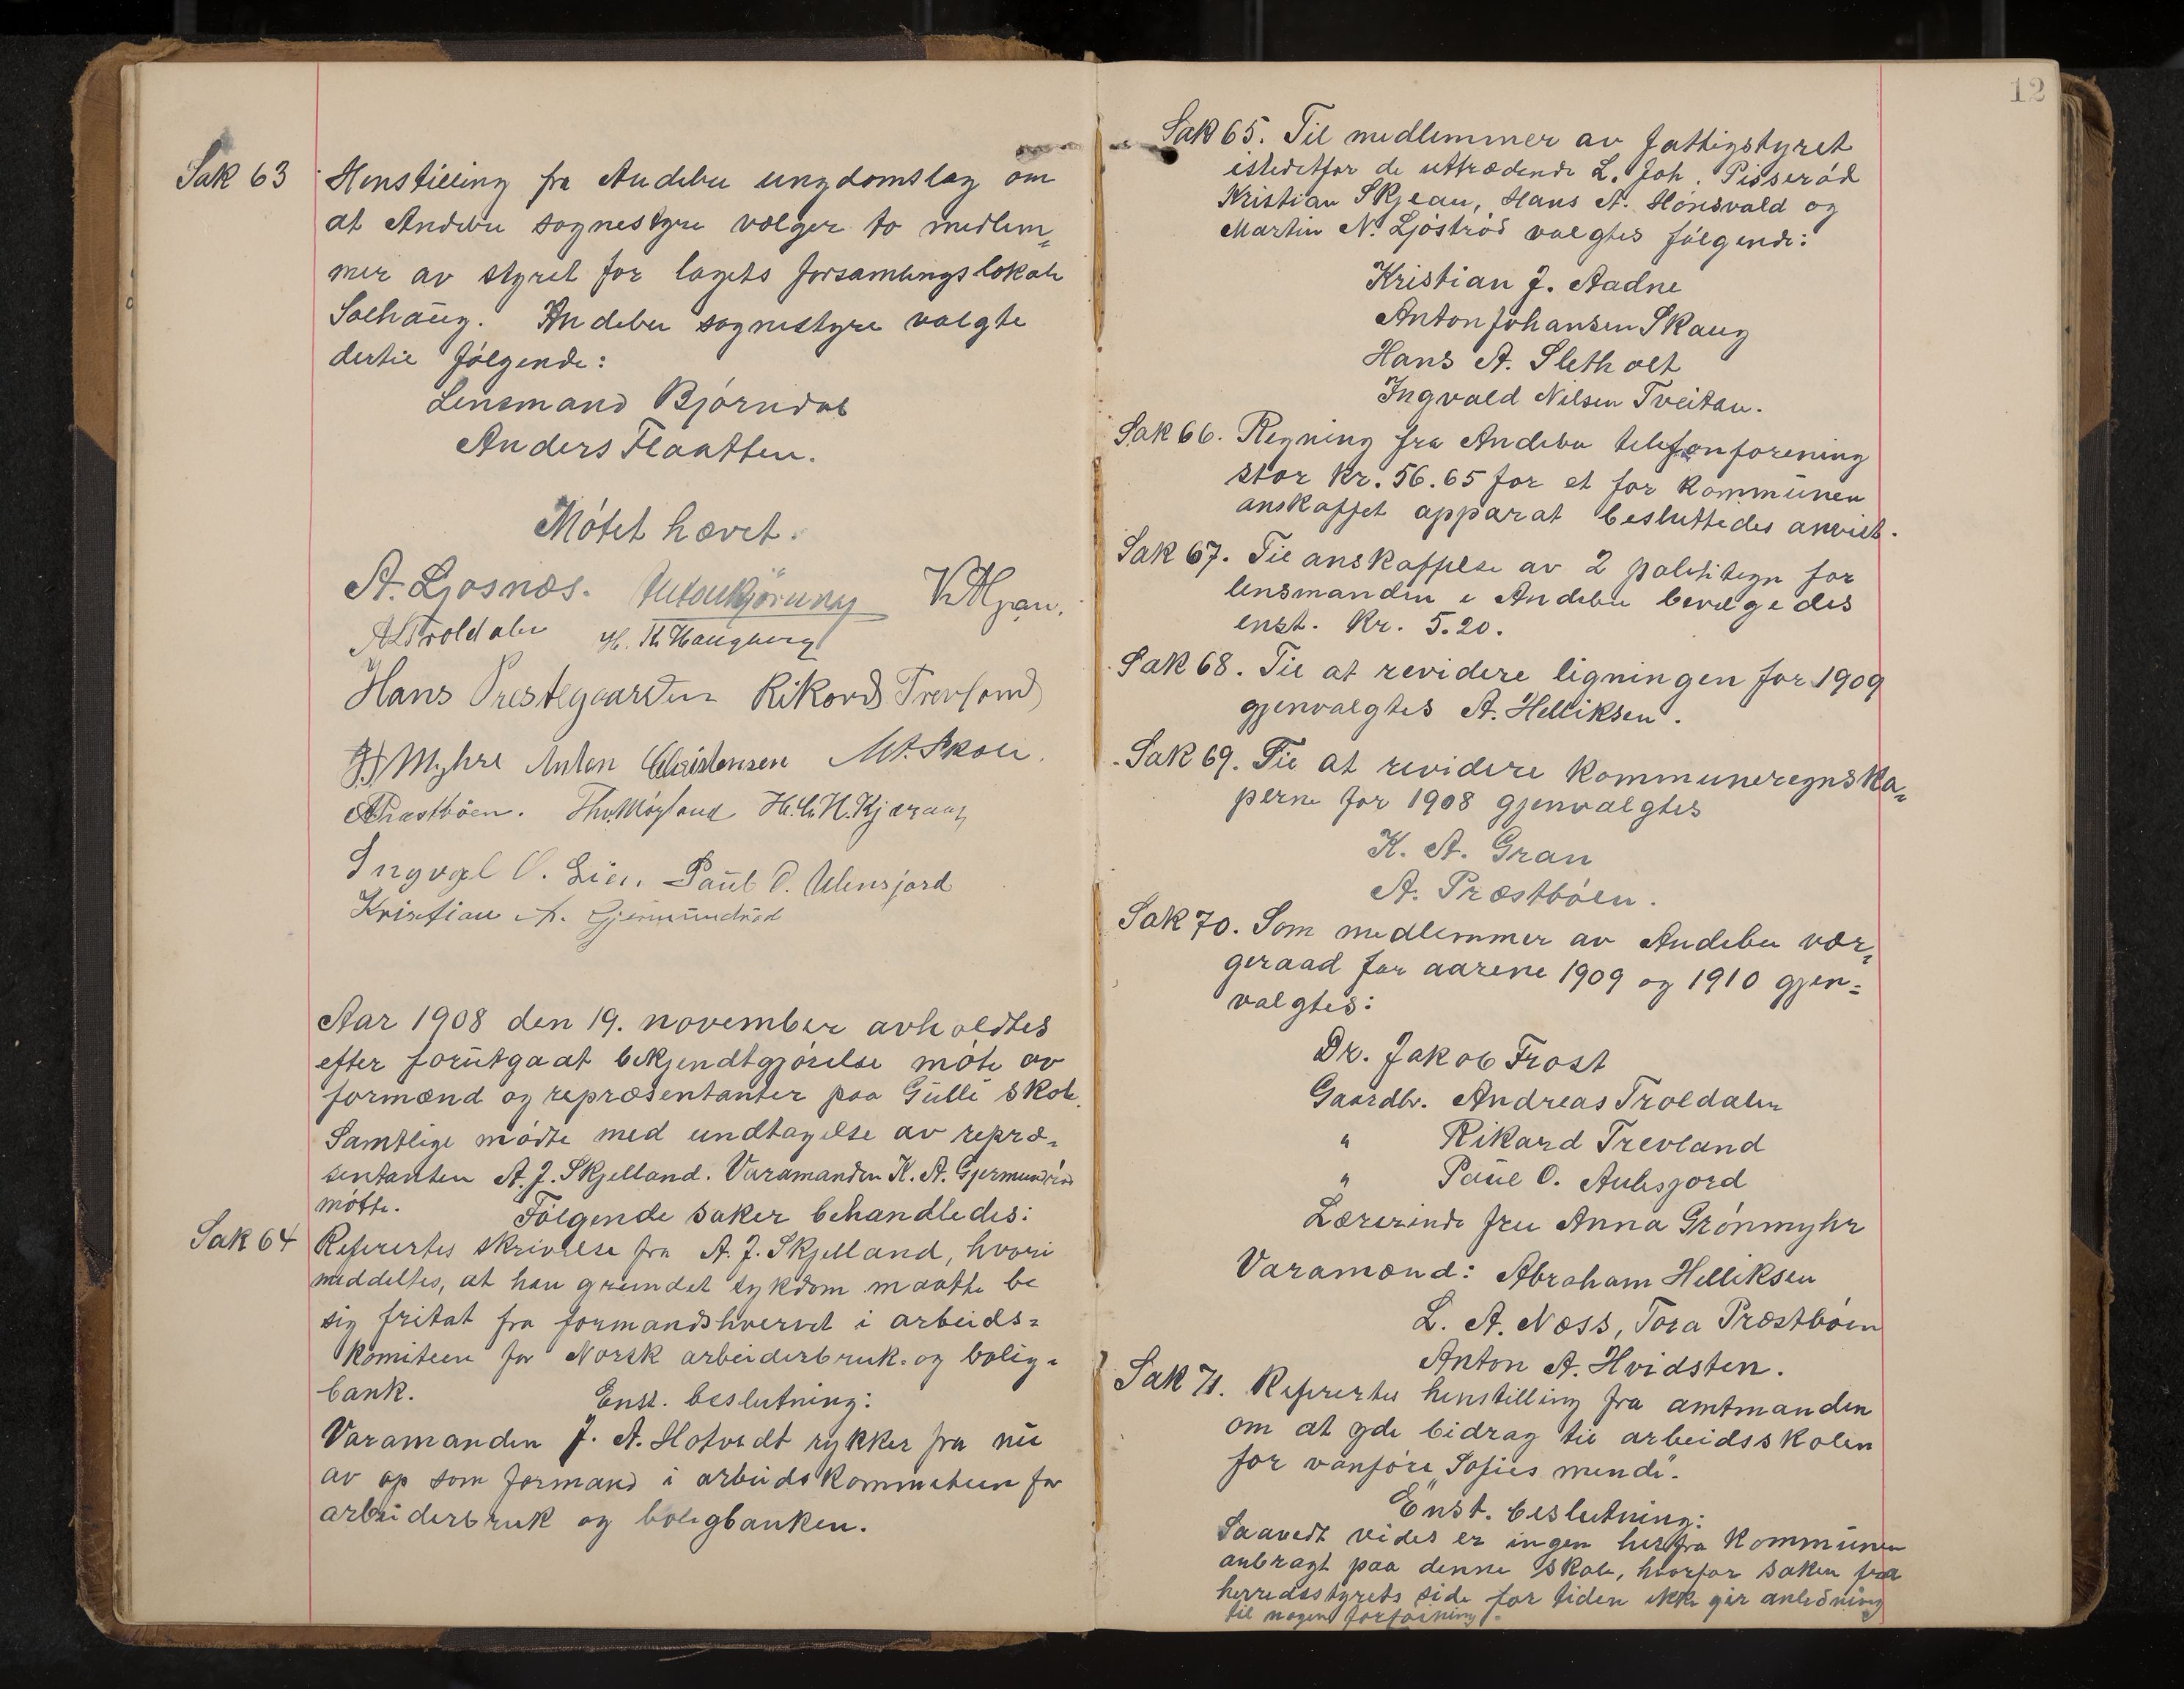 Sak 63 Henstilling fra Andebu ungdomslag om
at Andebu sognestyre vælger to medlem=
mer av styret for lagets forsamlingslokale
Solhaug. Andebu sognestyre valgte
dertil følgende:
Lensmand Bjørndal
Anders Flaatten.
Møtet hævet.
A. Ljosnæs. Anton Kjørning K A Gran.
A Troldalen H. K. Haugberg
Hans Prestegaarden Rikard Trevland
J. J. Myhre Anton Christensen M. A. Skou.
A Præstbøen. Thv. Møyland H. Chr. H. Kjæraas
Ingval O. Lien. Paul O. Ulensjord
Kristian A. Gjermundrød
Aar 1908 den 19. november avholdtes
efter forutgaat bekjendtgjørelse møte av
formænd og repræsentanter paa Gulli skole.
Samtlige mødte med undtagelse av repræ=
sentanten A. J. Skjelland. Varamanden K. A. Gjermundrød
møtte. Følgende saker behandledes:
Sak 64 Refertes skrivelse fra A. J. Skjelland, hvori
meddeltes, at han grundet sykdom maatte be
sig fritat fra formandshvervet i arbeids=
komiteen for Norsk arbeiderbruk- og bolig=
bank. Enst. beslutning:
Varamanden J. A. Hotvedt rykker fra nu
av op som formand i arbeidskommiteen for
arbeiderbruk og boligbanken.
12
Sak 65. Til medlemmer av fattigstyret
istedetfor de uttrædende L. Joh. Pisserød
Kristian Skjeau, Hans A. Hønsvald og
Martin N. Ljøstrød valgtes følgende:
Kristian J. Aadne
Anton Johansen Skaug
Hans A. Sletholt
Ingvald Nilsen Tveitan.
Sak 66. Regning fra Andebu telefonforening
stor kr. 56.65 for et for kommunen
anskaffet apparat besluttedes anvist.
Sak 67. Til anskaffelse av 2 polititegn for
lensmanden i Andebu bevilgedes
enst. kr. 5.20.
Sak 68. Til at revidere ligningen for 1909
gjenvalgtes A. Helliksen.
Sak 69. Til at revidere kommuneregnska=
perne for 1908 gjenvalgtes
K. A. Gran
A. Præstbøen.
Sak 70. Som medlemmer av Andebu vær=
geraad for aarene 1909 og 1910 gjen=
valgtes:
Dr. Jakob Frost
Gaardbr. Andreas Troldalen
" Rikard Trevland
" Paul O. Aulesjord
Lærerinde fru Anna Grønmyhr
Varamænd: Abraham Helliksen
L. A. Næss, Tora Præstbøen
Anton A. Hvidsten.
Sak 71. Refertes henstilling fra amtmanden
om at yde bidrag til arbeidsskolen
for vanføre "Sofies minde".
Enst. beslutning:
Saavidt vides er ingen herfra kommunen
anbragt paa denne skole, hvorfor saken fra
herredsstyrets side for tiden ikke gir anledning
til nogen forføining.